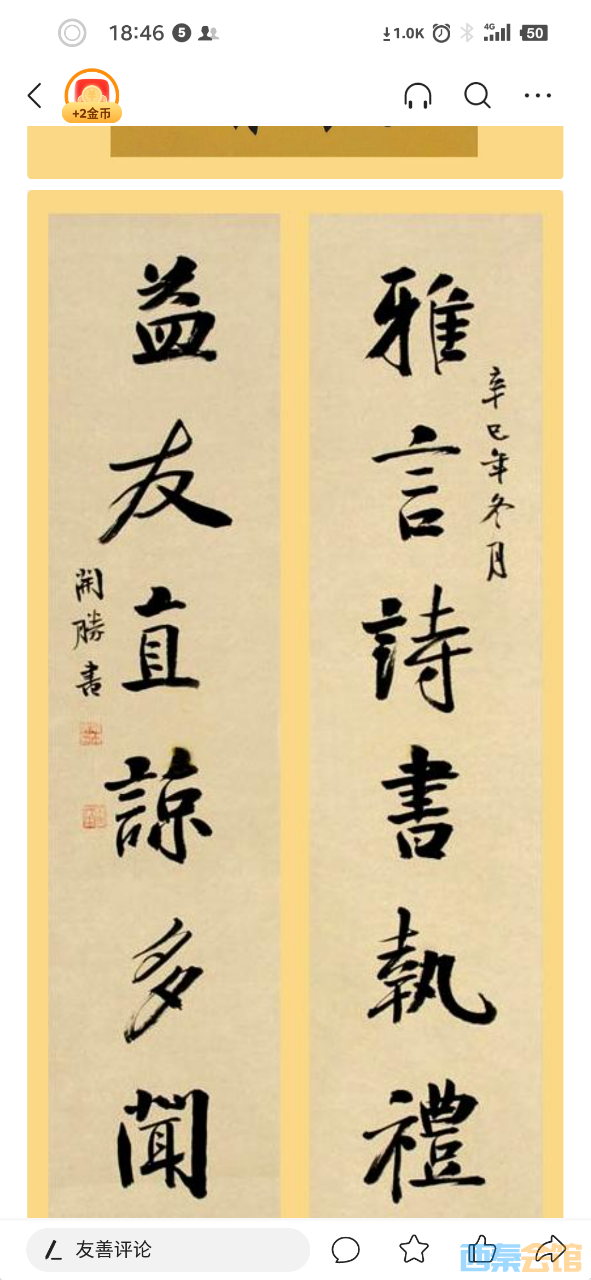 18:46 5 1.0K 4G 50
+2金币
雅言詩書執禮
辛巳年冬月
益友直諒多聞
開勝書
友善评论
西秦会馆